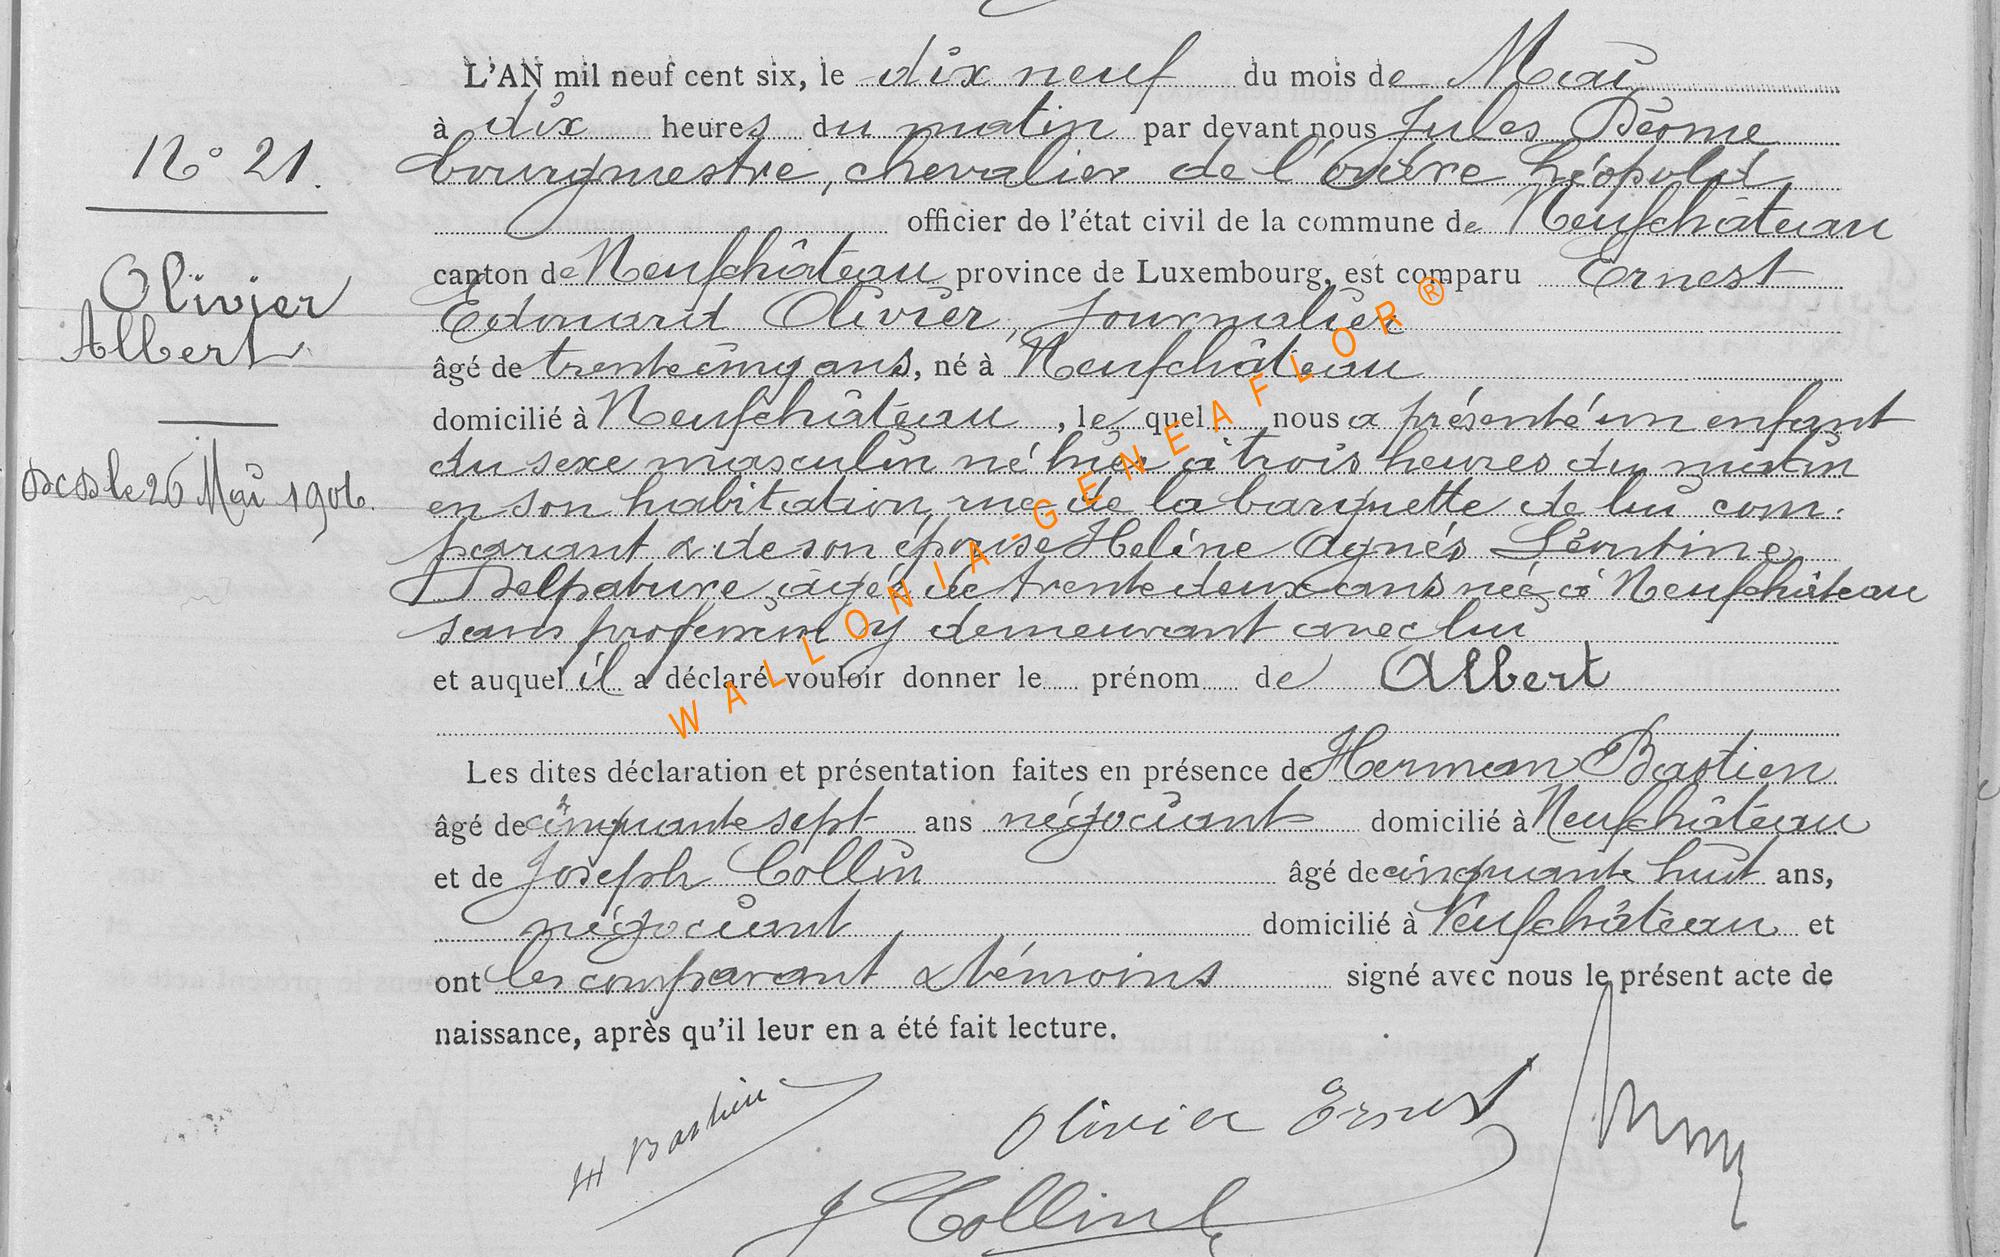 L'AN mil neuf cent six, le dix neuf du mois de Mai
à dix heures du matin par devant nous Jules Déome
bourgmestre, chevalier de l'Ordre Léopold
officier de l'état civil de la commune de Neufchâteau
canton de Neufchâteau province de Luxembourg, est comparu Ernest
Edouard Olivier, Journalier
âgé de trente cinq ans, né à Neufchâteau
domicilié à Neufchâteau, le quel nous a présenté un enfant
du sexe masculin né hier à trois heures du matin
en son habitation, rue de la barquette de lui com-
parant & de son épouse Hélène Agnés Léontine
Delpature, âgée de trente deux ans née à Neufchâteau
sans profession y demeurant avec lui
et auquel il a déclaré vouloir donner le prénom de Albert
Les dites déclaration et présentation faites en présence de Herman Bastien
âgé de cinquante sept ans négociant domicilié à Neufchâteau
et de Joseph Collin âgé de cinquante huit ans,
négociant domicilié à Neufchâteau et
ont les comparant & témoins signé avec nous le présent acte de
naissance, après qu'il leur en a été fait lecture.
N° 21.
Olivier
Albert
Dcd le 26 Mai 1906.
H Bastien
Olivier Ernest
J Collin
WALLONIA-GENEAFLOR®